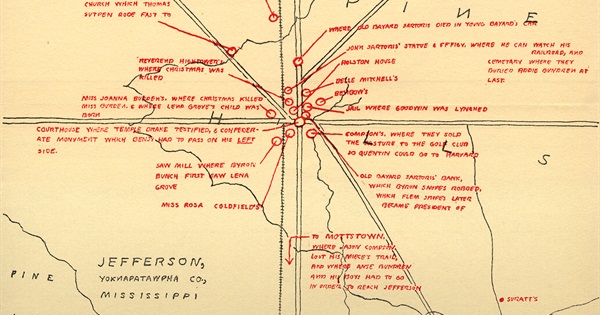 CHURCH WHICH THOMAS
SUTPEN RODE FAST TO
P I N E
WHERE OLD BAYARD SARTORIS DIED IN YOUNG BAYARD'S CAR
JOHN SARTORIS' STATUE & EFFIGY, WHERE HE CAN WATCH HIS
RAILROAD, AND
CEMETARY WHERE THEY
BURIED ADDIE BUNDREN AT
LAST.
REVEREND HIGHTOWER'S
WHERE CHRISTMAS WAS
KILLED
HOLSTON HOUSE
BELLE MITCHELL'S
BENBOW'S
MISS JOANNA BURDEN'S, WHERE CHRISTMAS KILLED
MISS BURDEN, & WHERE LENA GROVE'S CHILD WAS
BORN
JAIL WHERE GOODWIN WAS LYNCHED
H I L L S
COURTHOUSE WHERE TEMPLE DRAKE TESTIFIED, & CONFEDER-
ATE MONUMENT WHICH BENJY HAD TO PASS ON HIS LEFT
SIDE.
COMPSON'S, WHERE THEY SOLD
THE PASTURE TO THE GOLF CLUB
SO QUENTIN COULD GO TO HARVARD
SAW MILL WHERE BYRON
BUNCH FIRST SAW LENA
GROVE
OLD BAYARD SARTORIS' BANK,
WHICH BYRON SNOPES ROBBED,
WHICH FLEM SNOPES LATER
BECAME PRESIDENT OF
MISS ROSA COLDFIELD'S
TO MOTTSTOWN,
WHERE JASON COMPSON
LOST HIS NIECE'S TRAIL,
AND WHERE ANSE BUNDREN
AND HIS BOYS HAD TO GO
IN ORDER TO REACH JEFFERSON
JEFFERSON,
YOKNAPATAWPHA CO.,
MISSISSIPPI
PINE
SURATT'S